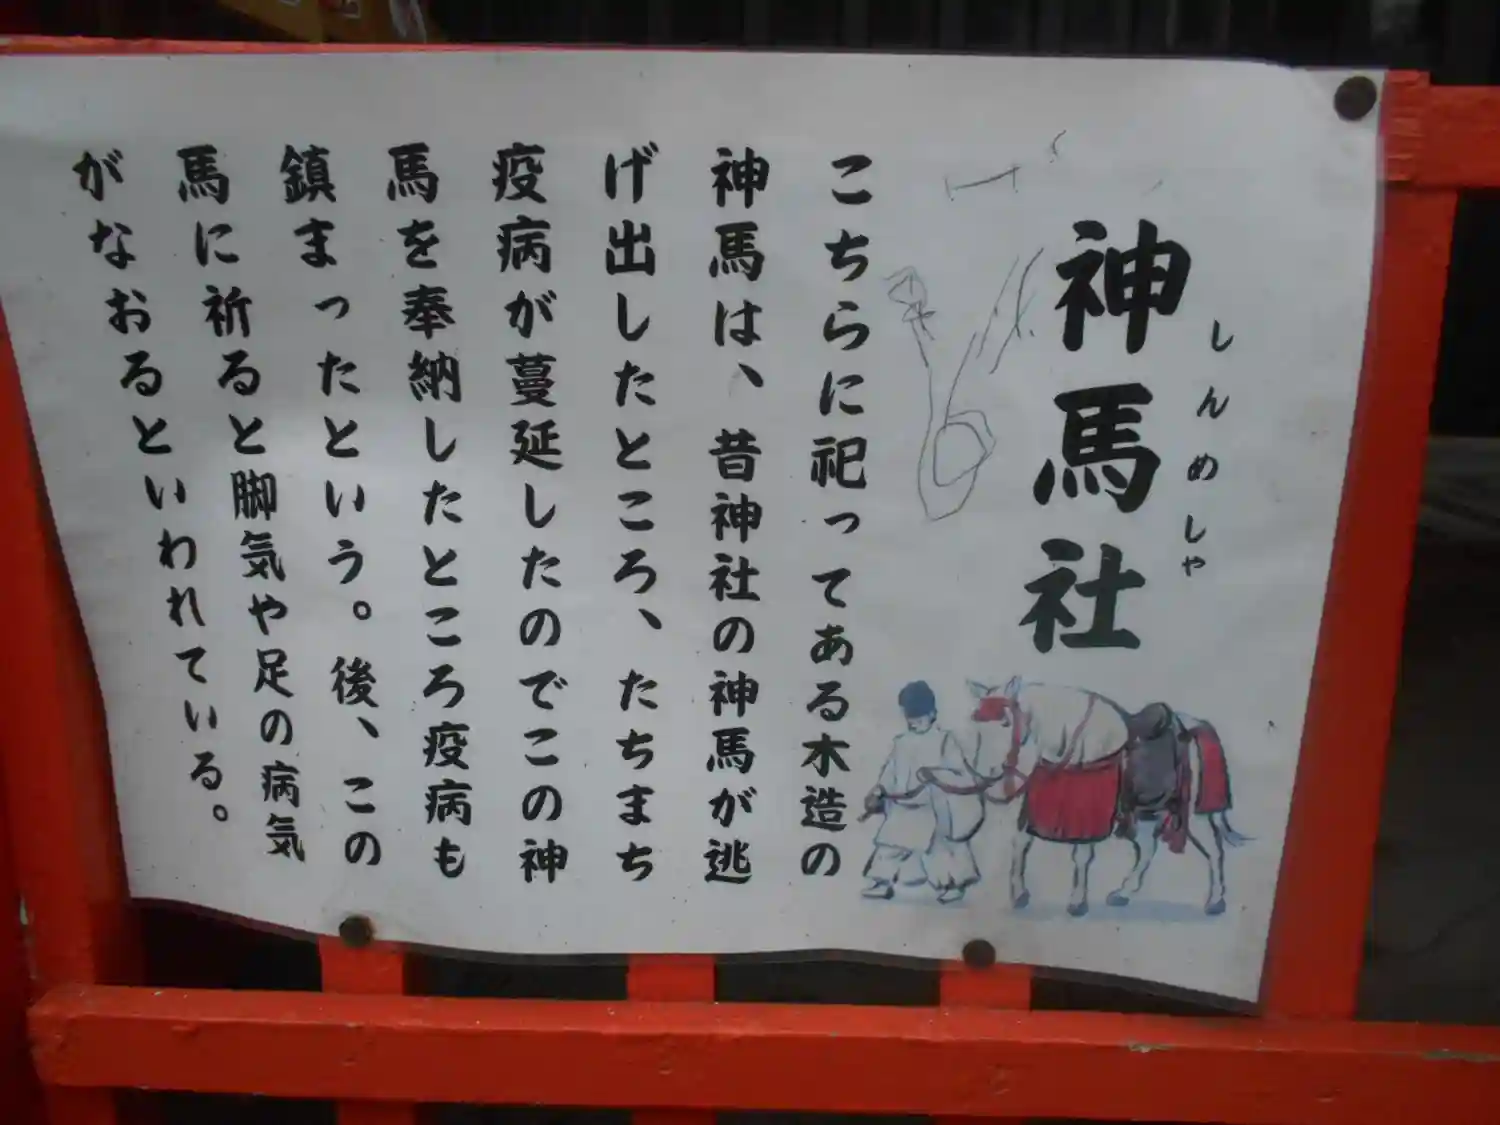 神馬社
しんめしゃ
こちらに祀ってある木造の
神馬は、昔神社の神馬が逃
げ出したところ、たちまち
疫病が蔓延したのでこの神
馬を奉納したところ疫病も
鎮まったという。後、この
馬に祈ると脚気や足の病気
がなおるといわれている。